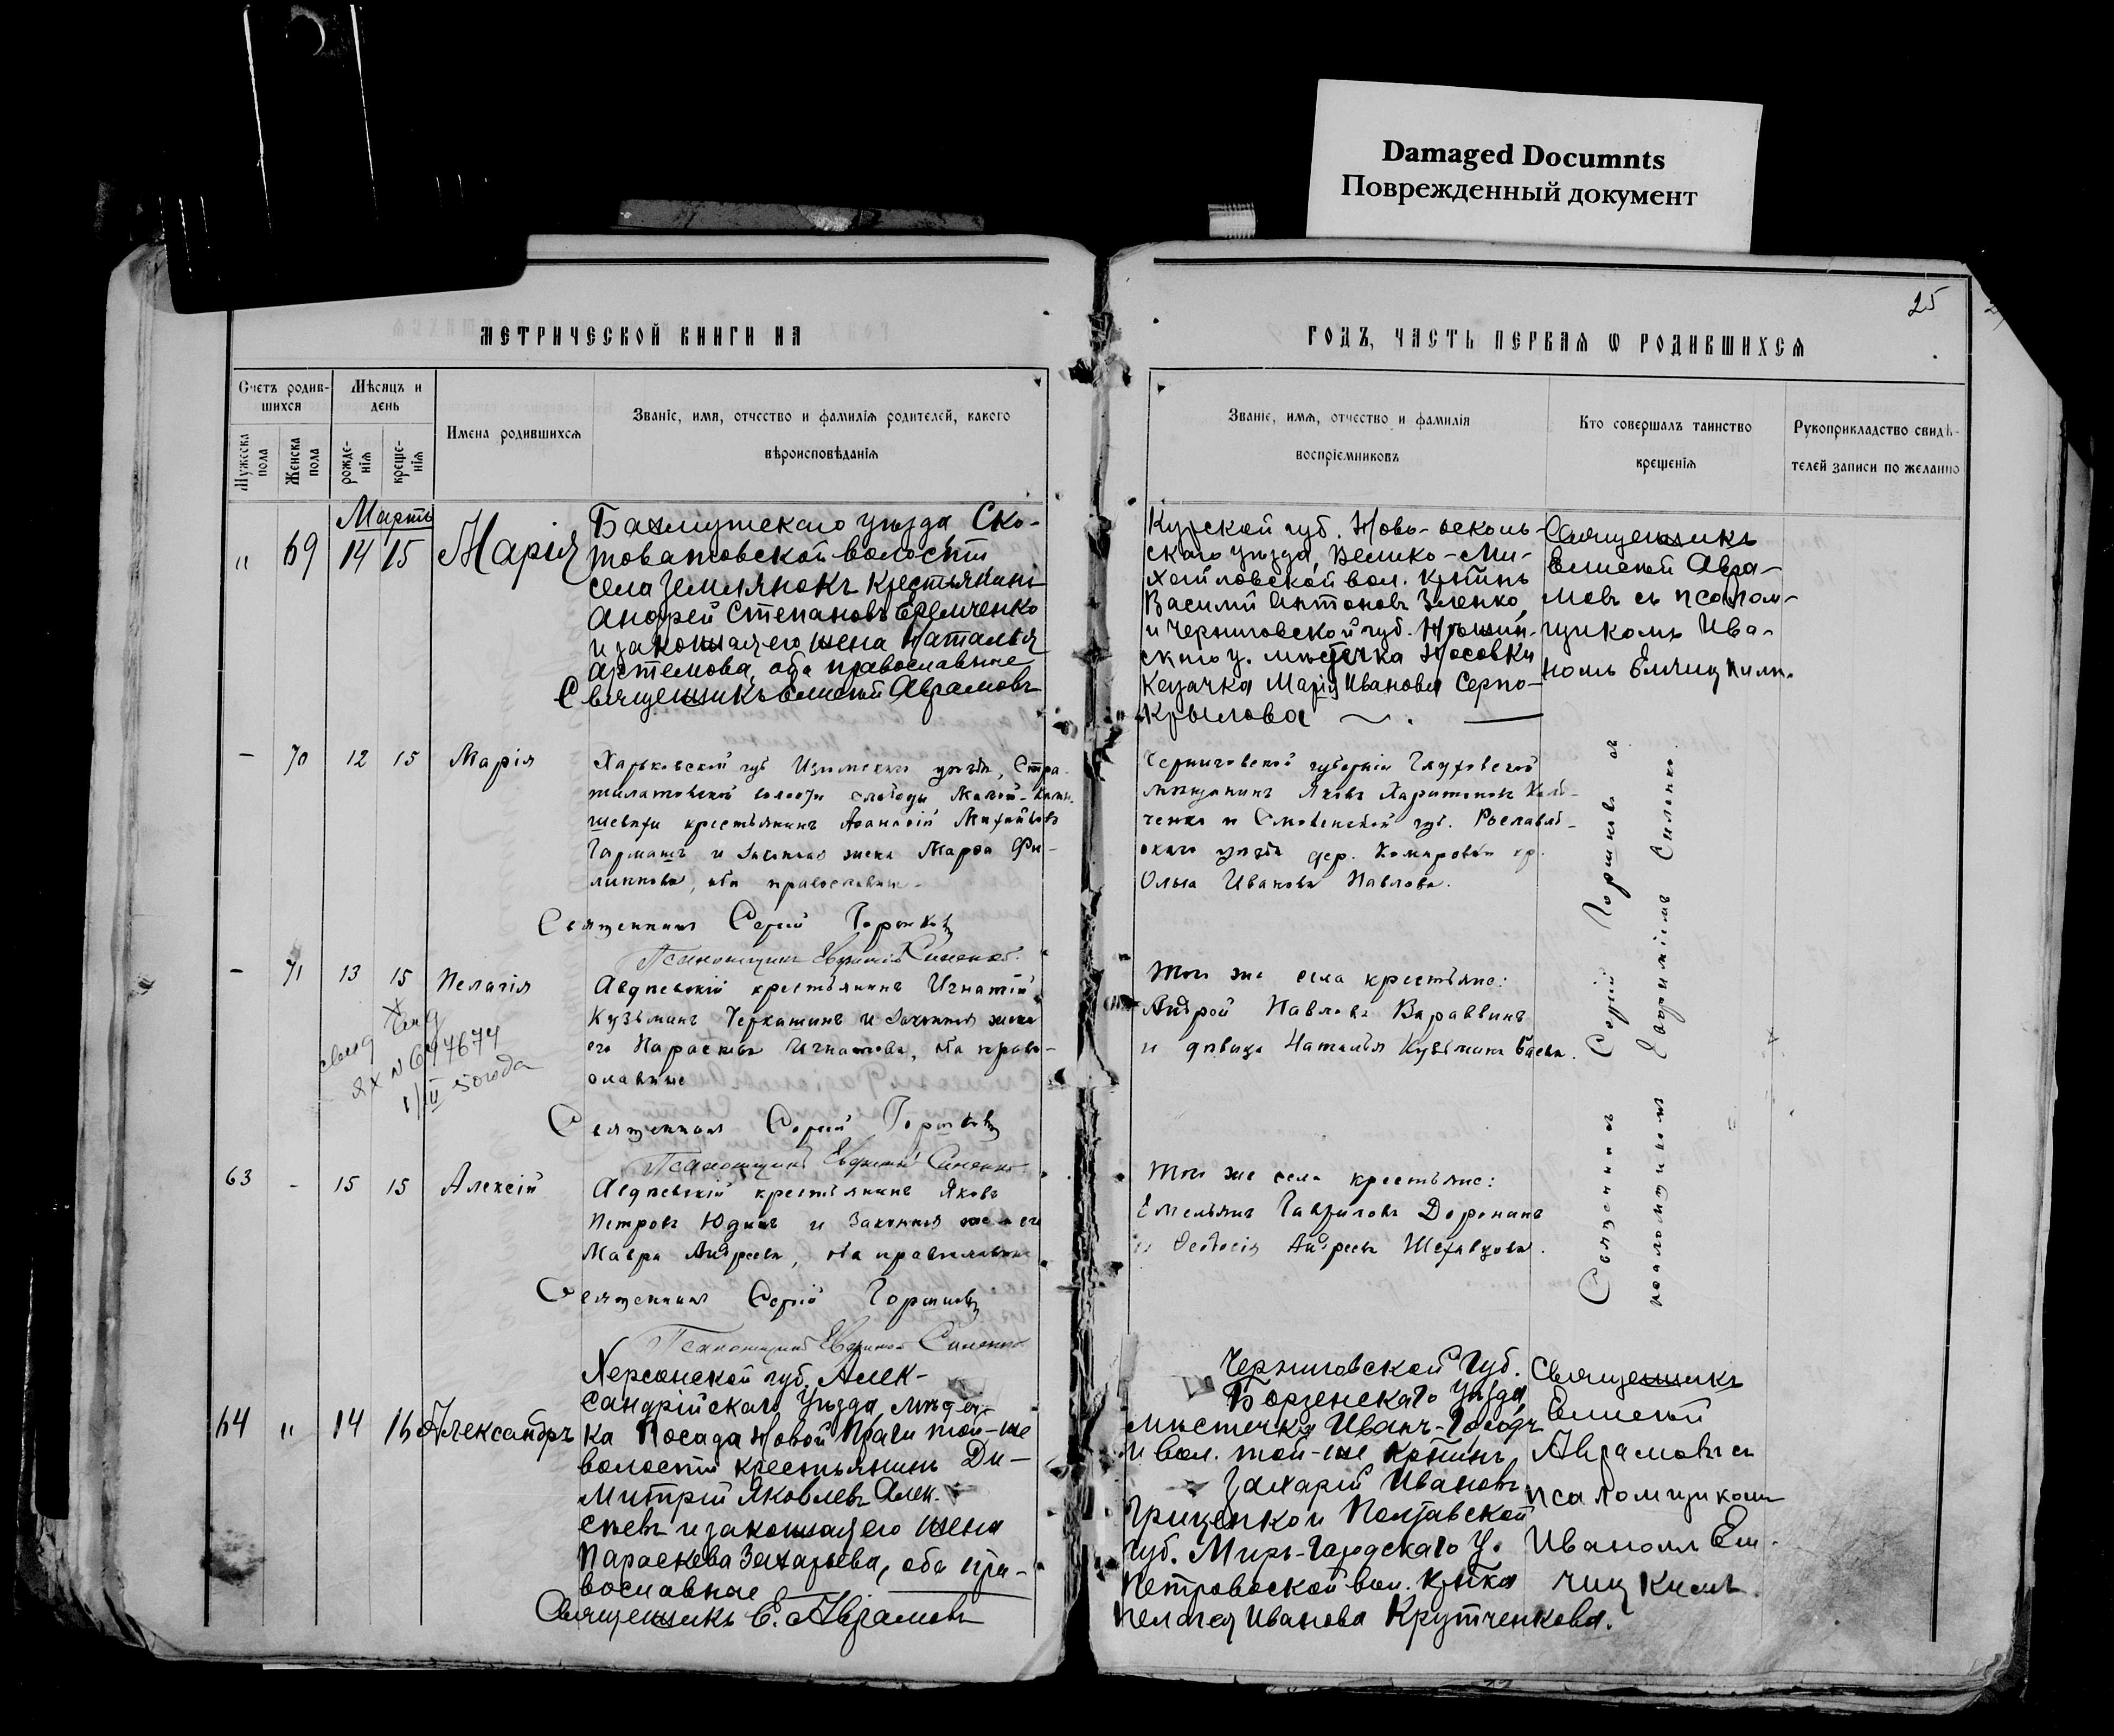 Damaged Documnts
Поврежденный документ
25
МЕТРИЧЕСКОЙ КНИГИ НА
ГОДЪ, ЧАСТЬ ПЕРВАЯ Ѡ РОДИВШИХСЯ
Счетъ родив-
шихся
Мѣсяцъ и
день
Мужеска
пола
Женска
пола
рожде-
нія
креще-
нія
Имена родившихся
Званіе, имя, отчество и фамилія родителей, какого
вѣроисповѣданія
Званіе, имя, отчество и фамилія
воспріемниковъ
Кто совершалъ таинство
крещенія
Рукоприкладство свидѣ-
телей записи по желанію
Мартъ
" 69 14 15 Марія
Бахмутскаго уѣзда Ско-
товатовской волости
села Землянокъ крестьянинъ
Андрей Степановъ Еремченко
и законная его жена Наталья
Артемова, оба православные
Священникъ Елисей Авраамовъ
Курской губ. Ново-осколь-
скаго уѣзда, Велико-Ми-
хайловской вол. кр-нинъ
Василій Антоновъ Зленко
и Черниговской губ. Нѣжин-
скаго у. мѣстечка Носовки
Казачка Марія Иванова Серпо-
крылова
Священникъ
Елисей Авра-
мовъ съ псалом-
щикомъ Ива-
номъ
- 70 12 15 Марія
Харьковской губ Изюмскаго уѣзда, Стра-
тилатовской волости слободы Малой-Камы-
шевахи крестьянинъ Афанасій Михайловъ
и законная жена Марфа Фи-
липпова, оба православные
Священникъ Сергій Горшковъ
Псаломщикъ Евфимій Синенко
Черниговской губерніи Глуховской
мѣщанинъ Яковъ Харитоновъ
ченко и Смоленской губ. Рославль-
скаго уѣзда дер. Комаровки кр.
Ольга Иванова Павлова.
Священникъ Сергій Горшковъ съ
псаломщикомъ Евфиміемъ Синенко
- 71 13 15 Пелагія
Авдѣевскій крестьянинъ Игнатій
Кузьминъ Черкашинъ и законная жена
его Параскева Игнатова, оба право-
славные
Священникъ Сергій Горшковъ
Псаломщикъ Евфимій Синенко
Того же села крестьяне:
Андрей Павловъ Вараввинъ
и дѣвица Наталья Кузьмина Баева.
ЯХ N 647674
1/III 50 года
63 - 15 15 Алексій
Авдѣевскій крестьянинъ Яковъ
Петровъ Юдинъ и законная жена его
Мавра Андреева, оба православные
Священникъ Сергій Горшковъ
Псаломщикъ Евфимій Синенко
Того же села крестьяне:
Емельянъ Гавриловъ Доронинъ
и Феодосія Андреева Шехавцова.
64 " 14 16 Александръ
Херсонской губ. Алек-
сандрійскаго уѣзда,
ка Посада Новой Праги той-же
волости крестьянинъ Ди-
митрій Яковлевъ Алек-
сѣевъ и законная его жена
Параскева Захарьева, оба пра-
вославные
Священникъ Е. Авраамовъ
Черниговской губ.
Борзенскаго уѣзда,
мѣстечка Иванъ-Города
и вол. той-же кр-нинъ
Захарій Ивановъ
Гриценко и Полтавской
губ. Миръ-Городскаго у.
Петровской вол. кр-нка
Пелагея Иванова Крутченкова.
Священникъ
Елисей
Авраамовъ съ
псаломщикомъ
Иваномъ